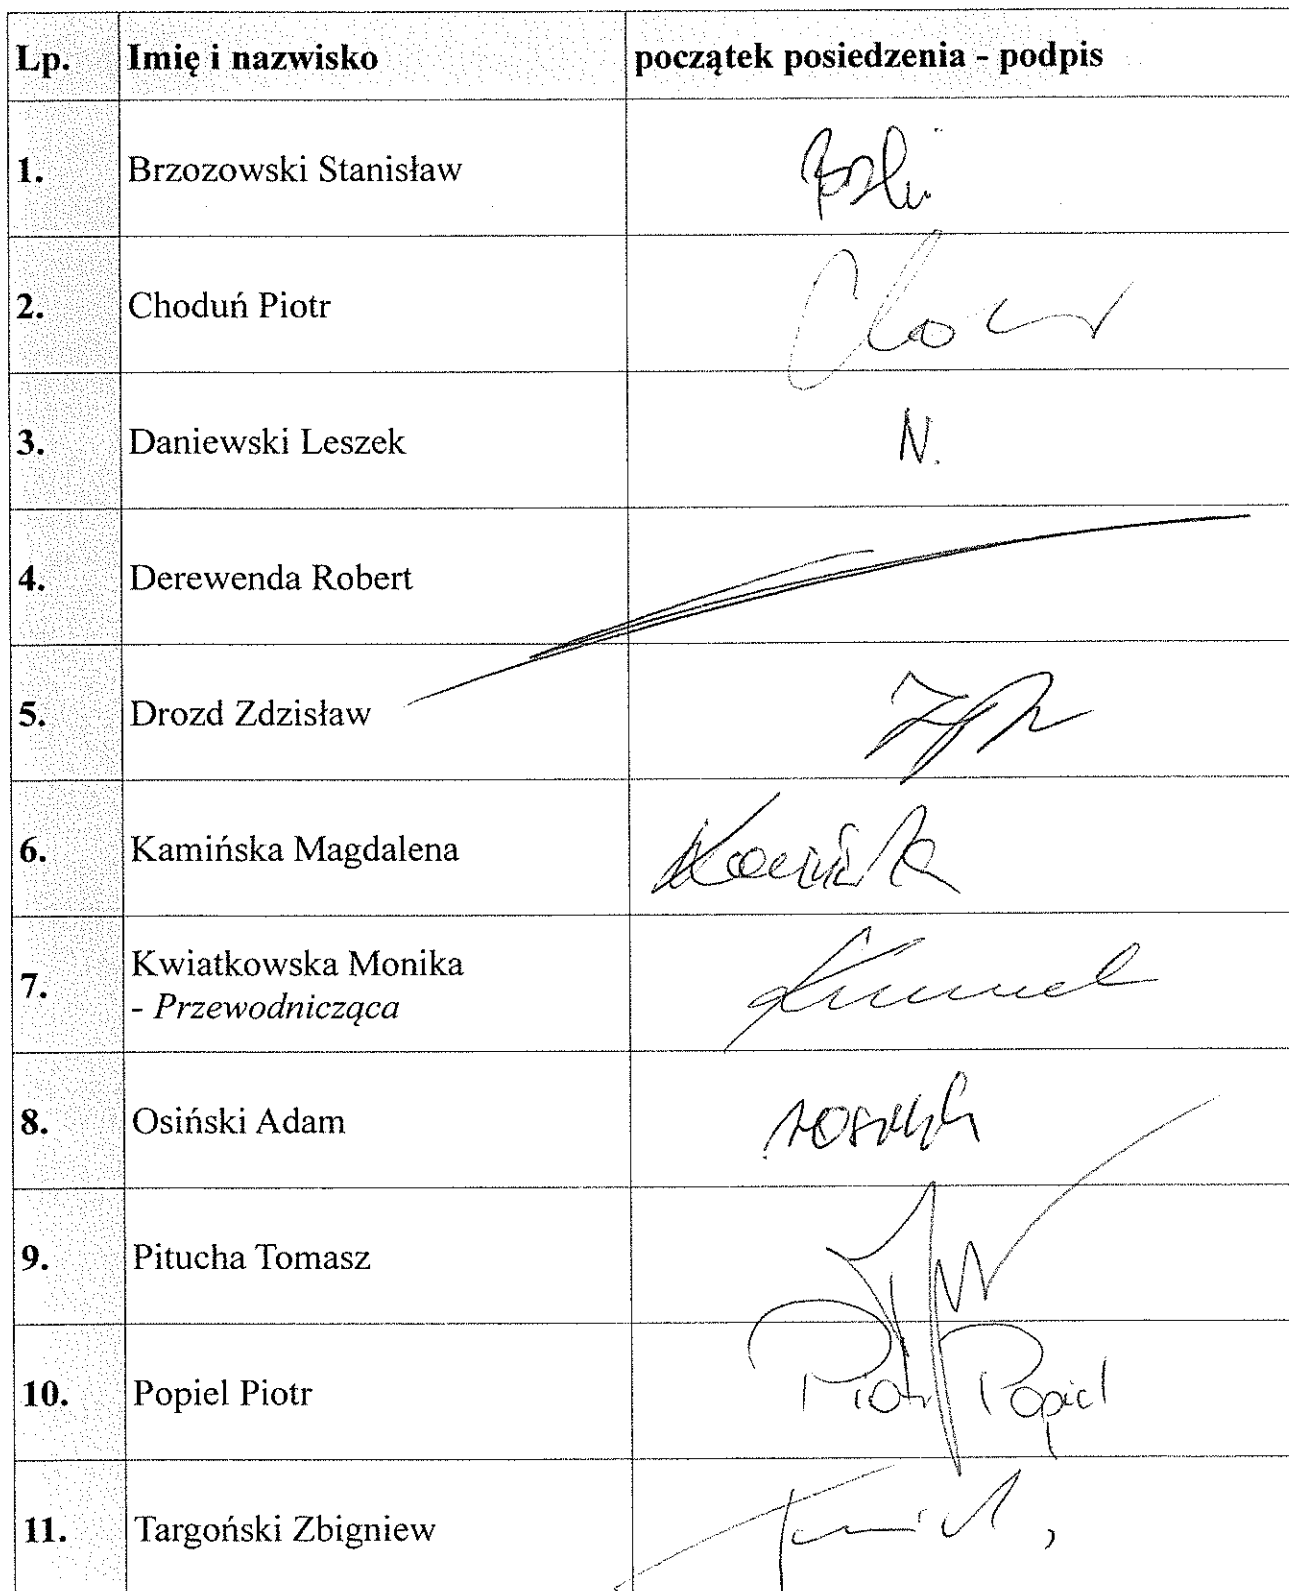 Lp. Imię i nazwisko początek posiedzenia - podpis
1. Brzozowski Stanisław
2. Choduń Piotr
3. Daniewski Leszek N.
4. Derewenda Robert
5. Drozd Zdzisław
6. Kamińska Magdalena
7. Kwiatkowska Monika
- Przewodnicząca
8. Osiński Adam
9. Pitucha Tomasz
10. Popiel Piotr Piotr Popiel
11. Targoński Zbigniew